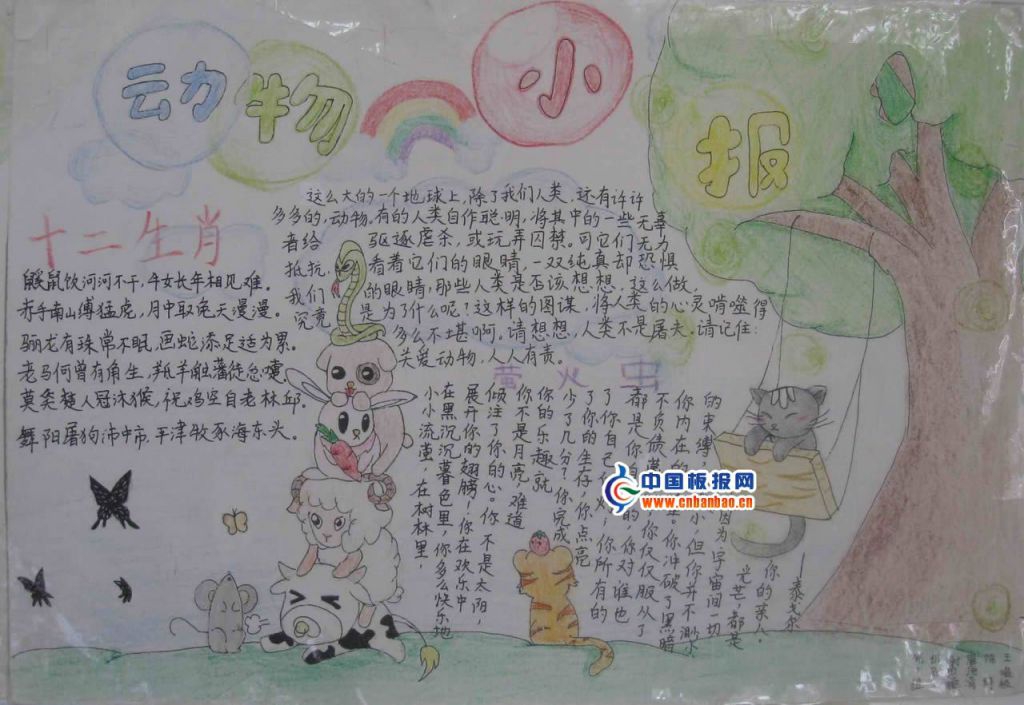 动物小报
十二生肖
鼷鼠饮河河不干，牛女长年相见难。
赤手南山缚猛虎，月中取兔天漫漫。
骊龙有珠常不眠，画蛇添足适为累。
老马何曾有角生，羝羊触藩徒忿嚏。
莫笑楚人冠沐猴，祝鸡空自老林邱。
舞阳屠狗沛中市，平津牧豕海东头。
这么大的一个地球上，除了我们人类，还有许许
多多的，动物。有的人类自作聪明，将其中的一些无辜
者给 驱逐虐杀，或玩弄囚禁。可它们无力
抵抗， 看着它们的眼睛，一双纯真却恐惧
我们 的眼睛，那些人类是否该想想，这么做，
究竟 是为了什么呢？这样的图谋，将人类的心灵啃噬得
多么不堪啊。请想想，人类不是屠夫。请记住：
关爱动物，人人有责。
萤火虫
小小流萤，在树林里，
在黑沉沉暮色里，你多么快乐地
展开你的翅膀！你在欢乐中
倾注了你的心。你不是太阳，
你不是月亮，难道
你的乐趣就
少了几分？你完成
了你的生存，你点亮
了你自己的
都是你自己的，你对谁也
不负债蒙恩，你仅仅服从了
你内在的 你冲破了黑暗
的束缚， 小，但你并不渺小
因为宇宙间一切
光芒，都是
你的亲人。
——泰戈尔
中国板报网
www.cnbanbao.cn